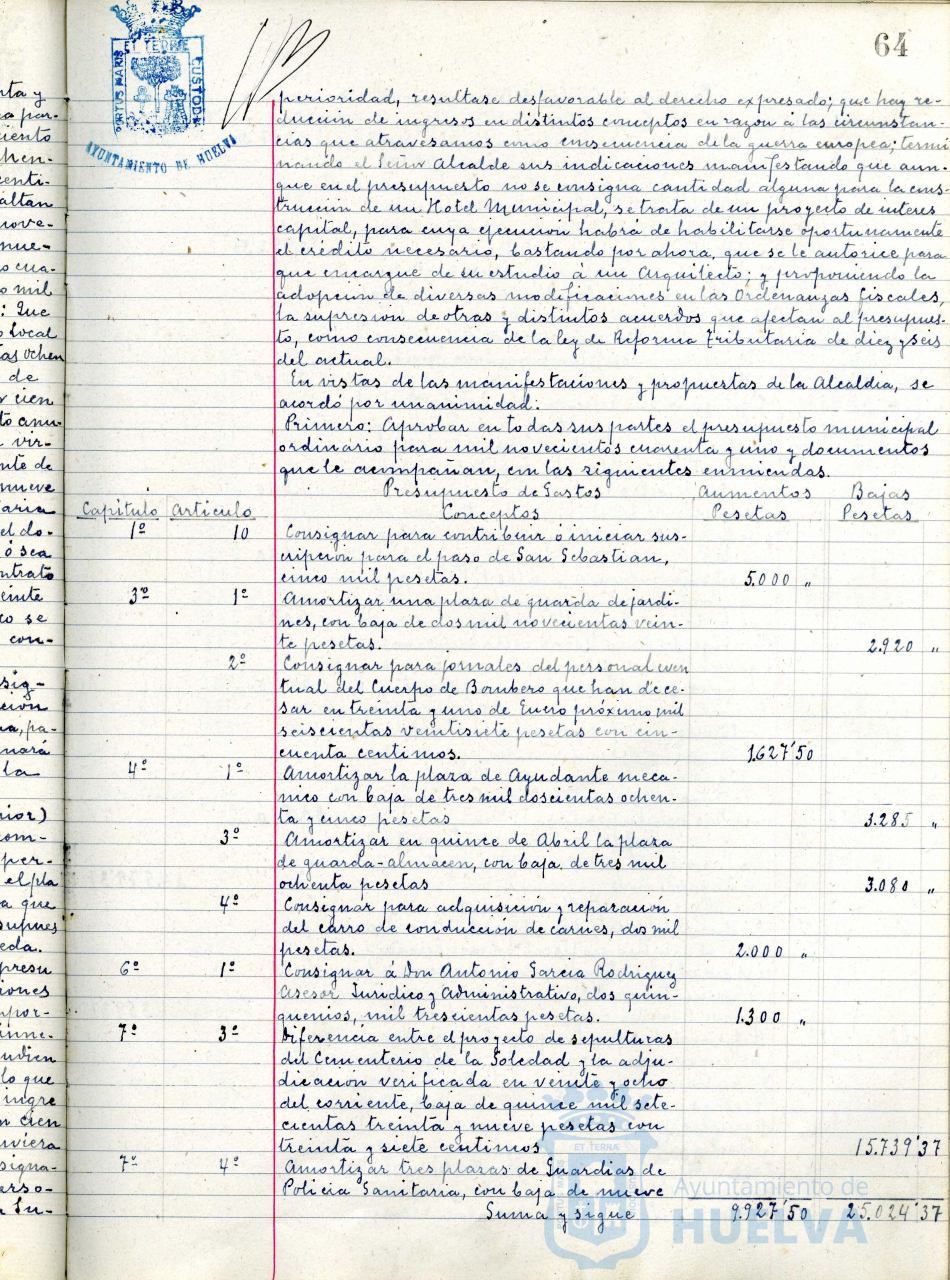 64
PORTUS MARIS ET TERRE CUSTODIA
AYUNTAMIENTO DE HUELVA
perioridad, resultase desfavorable al derecho expresado; que hay re-
ducción de ingresos en distintos conceptos en razón á las circunstan-
cias que atravesamos como consecuencia de la guerra europea; termi
nando el Señor Alcalde sus indicaciones manifestando que aun-
que en el presupuesto no se consigna cantidad alguna para la cons-
trucción de un Hotel Municipal, se trata de un proyecto de interes
capital, para cuya ejecución habrá de habilitarse oportunamente
el crédito necesario, bastando por ahora, que se le autorice para
que encargue de su estudio á un Arquitecto; y proponiendo la
adopción de diversas modificaciones en las Ordenanzas fiscales,
la supresión de otras y distintos acuerdos que afectan al presupues-
to, como consecuencia de la ley de Reforma Tributaria de diez y seis
del actual.
En vistas de las manifestaciones y propuestas de la Alcaldia, se
acordó por unanimidad:
Primero: Aprobar en todas sus partes el presupuesto municipal
ordinario para mil novecientos cuarenta y uno y documentos
que le acompañan, con las siguientes enmiendas.
Presupuesto de Gastos Aumentos Bajas
Capitulo Articulo Conceptos Pesetas Pesetas
1º 10 Consignar para contribuir ó iniciar sus-
cripción para el paso de San Sebastian,
cinco mil pesetas. 5.000 "
3º 1º Amortizar una plaza de guarda de jardi-
nes, con baja de dos mil novecientas vein-
te pesetas. 2.920 "
2º Consignar para jornales del personal even
tual del Cuerpo de Bombero que han de ce-
sar en treinta y uno de Enero próximo mil
seiscientas veintisiete pesetas con cin-
cuenta centimos. 1.627'50
4º 1º Amortizar la plaza de Ayudante meca-
nico con baja de tres mil doscientas ochen-
ta y cinco pesetas 3.285 "
3º Amortizar en quince de Abril la plaza
de guarda-almacen, con baja de tres mil
ochenta pesetas 3.080 "
4º Consignar para adquisición y reparación
del carro de conducción de carnes, dos mil
pesetas. 2.000 "
6º 1º Consignar á Don Antonio Garcia Rodriguez
Asesor Juridico y Administrativo, dos quin-
quenios, mil trescientas pesetas. 1.300 "
7º 3º Diferencia entre el proyecto de sepulturas
del Cementerio de la Soledad y la adju-
dicación verificada en veinte y ocho
del corriente, baja de quince mil sete-
cientas treinta y nueve pesetas con
treinta y siete centimos 15.739'37
7º 4º Amortizar tres plazas de Guardias de
Policia Sanitaria, con baja de nueve
Suma y sigue 9.927'50 25.024'37
Ayuntamiento de
HUELVA